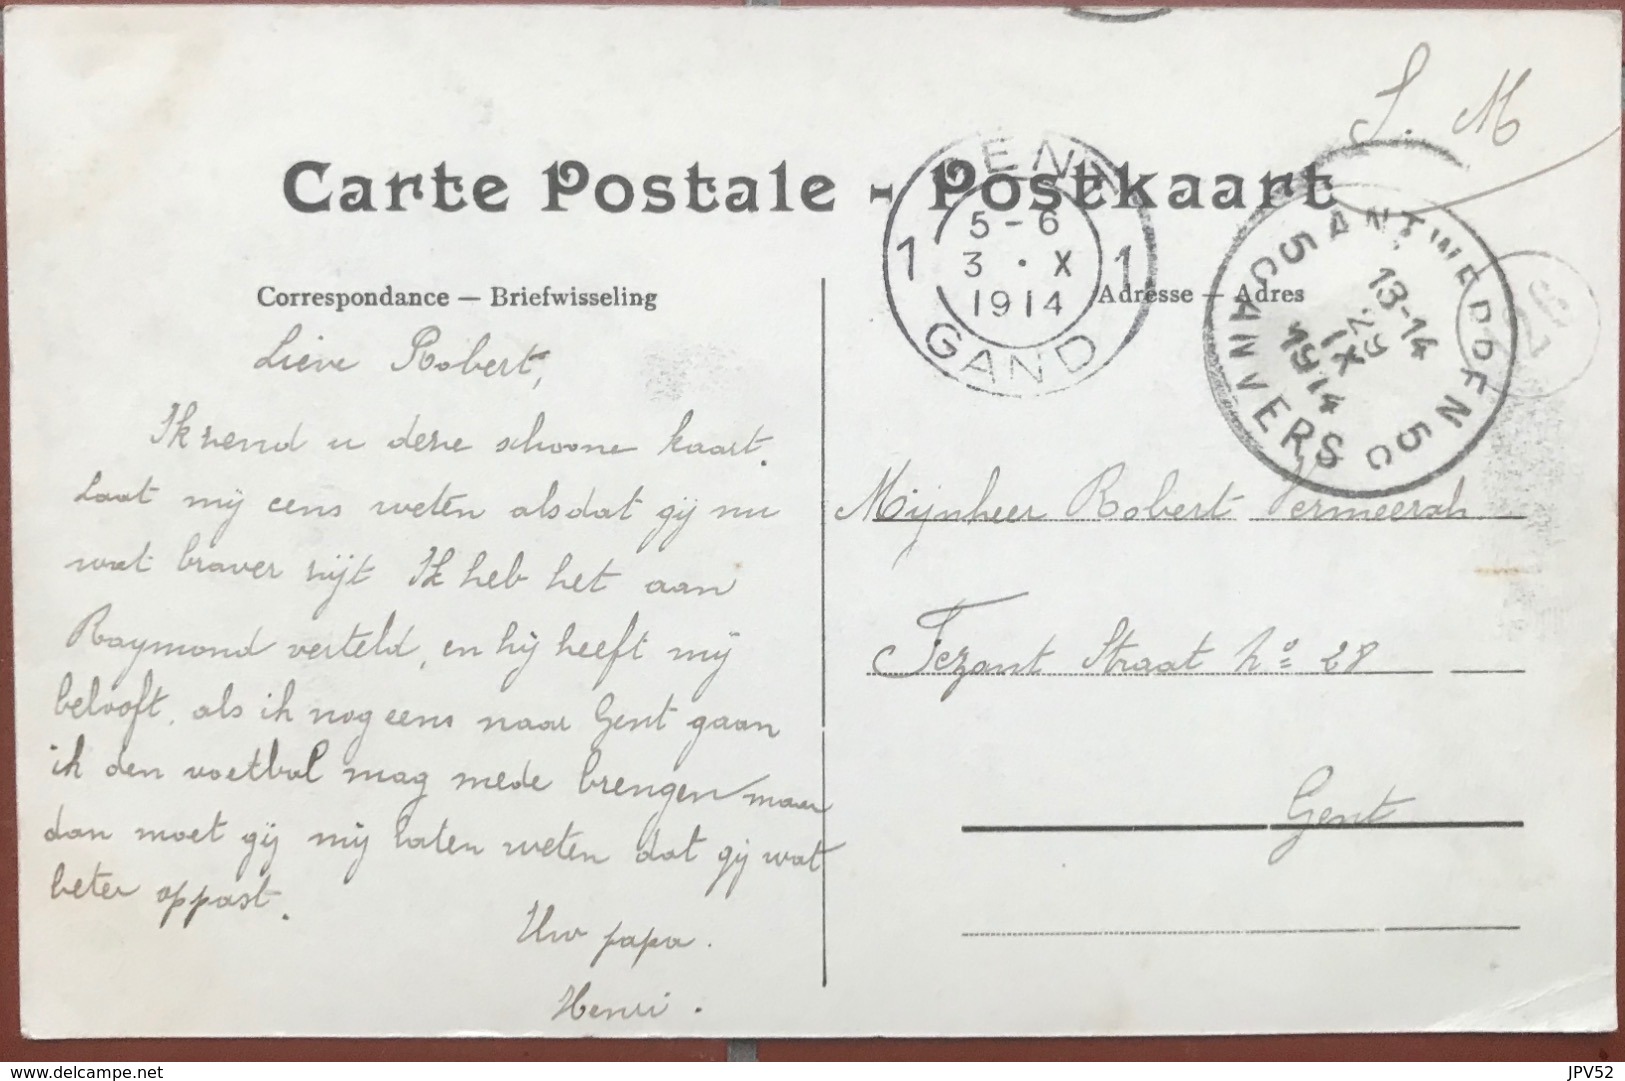 S. M
Carte Postale - Postkaart
GENT
1 5-6 1
3 · X
1914
GAND
ANTWERPEN 5C
13-14
29
IX
1914
5C ANVERS
Correspondance — Briefwisseling
Adresse — Adres
Lieve Robert,
Ik zend u deze schoone kaart.
Laat mij eens weten alsdat gij nu
wat braver zijt Ik heb het aan
Raymond verteld, en hij heeft mij
belooft, als ik nog eens naar Gent gaan
ik den voetbal mag mede brengen maar
dan moet gij mij laten weten dat gij wat
beter oppast.
Uw papa.
Henri.
Mijnheer Robert Vermeersch
Fezant Straat No 28
Gent
www.delcampe.net
JPV52